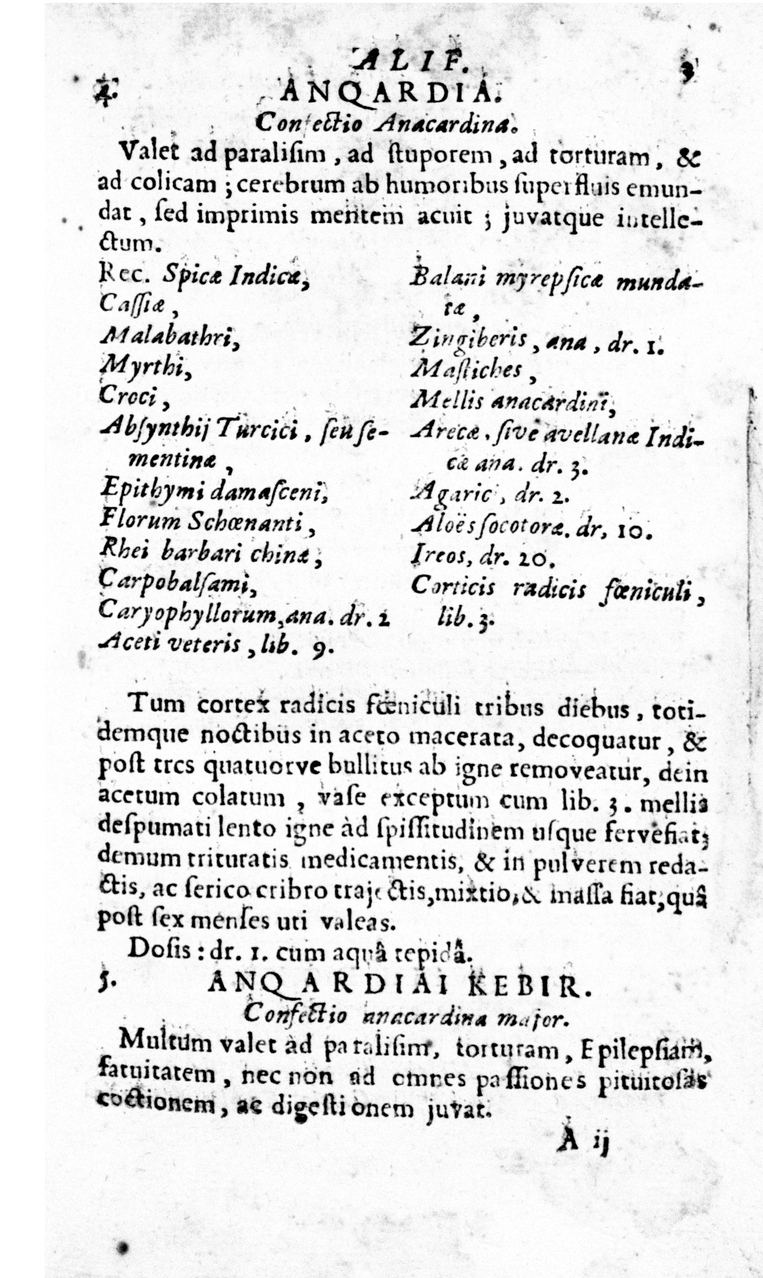 ALIF. 3
4. ANQARDIA.
Confectio Anacardina.
Valet ad paralisim, ad stuporem, ad torturam, &
ad colicam; cerebrum ab humoribus superfluis emun-
dat, sed imprimis mentem acuit; juvatque intelle-
ctum.
Rec. Spicæ Indicæ,
Cassiæ,
Malabathri,
Myrthi,
Croci,
Absynthij Turcici, seu se-
mentinæ,
Epithymi damasceni,
Florum Schœnanti,
Rhei barbari chinæ,
Carpobalsami,
Caryophyllorum, ana. dr. 2
Aceti veteris, lib. 9.
Balani myrepsicæ munda-
tæ,
Zingiberis, ana, dr. 1.
Mastiches,
Mellis anacardini,
Arecæ. sive avellanæ Indi-
cæ ana. dr. 3.
Agaric, dr. 2.
Aloës socotoræ. dr, 10.
Ireos, dr. 20.
Corticis radicis fœniculi,
lib. 3.
Tum cortex radicis fœniculi tribus diebus, toti-
demque noctibus in aceto macerata, decoquatur, &
post tres quatuorve bullitus ab igne removeatur, dein
acetum colatum, vase exceptum cum lib. 3. mellis
despumati lento igne ad spissitudinem usque fervefiat;
demum trituratis medicamentis, & in pulverem reda-
ctis, ac serico cribro trajectis, mixtio, & massa fiat, quâ
post sex menses uti valeas.
Dosis: dr. 1. cum aquâ tepidâ.
5. ANQARDIAI KEBIR.
Confectio anacardina major.
Multum valet ad paralisim, torturam, Epilepsiam,
fatuitatem, nec non ad omnes passiones pituitosas
coctionem, ac digestionem juvat.
A ij